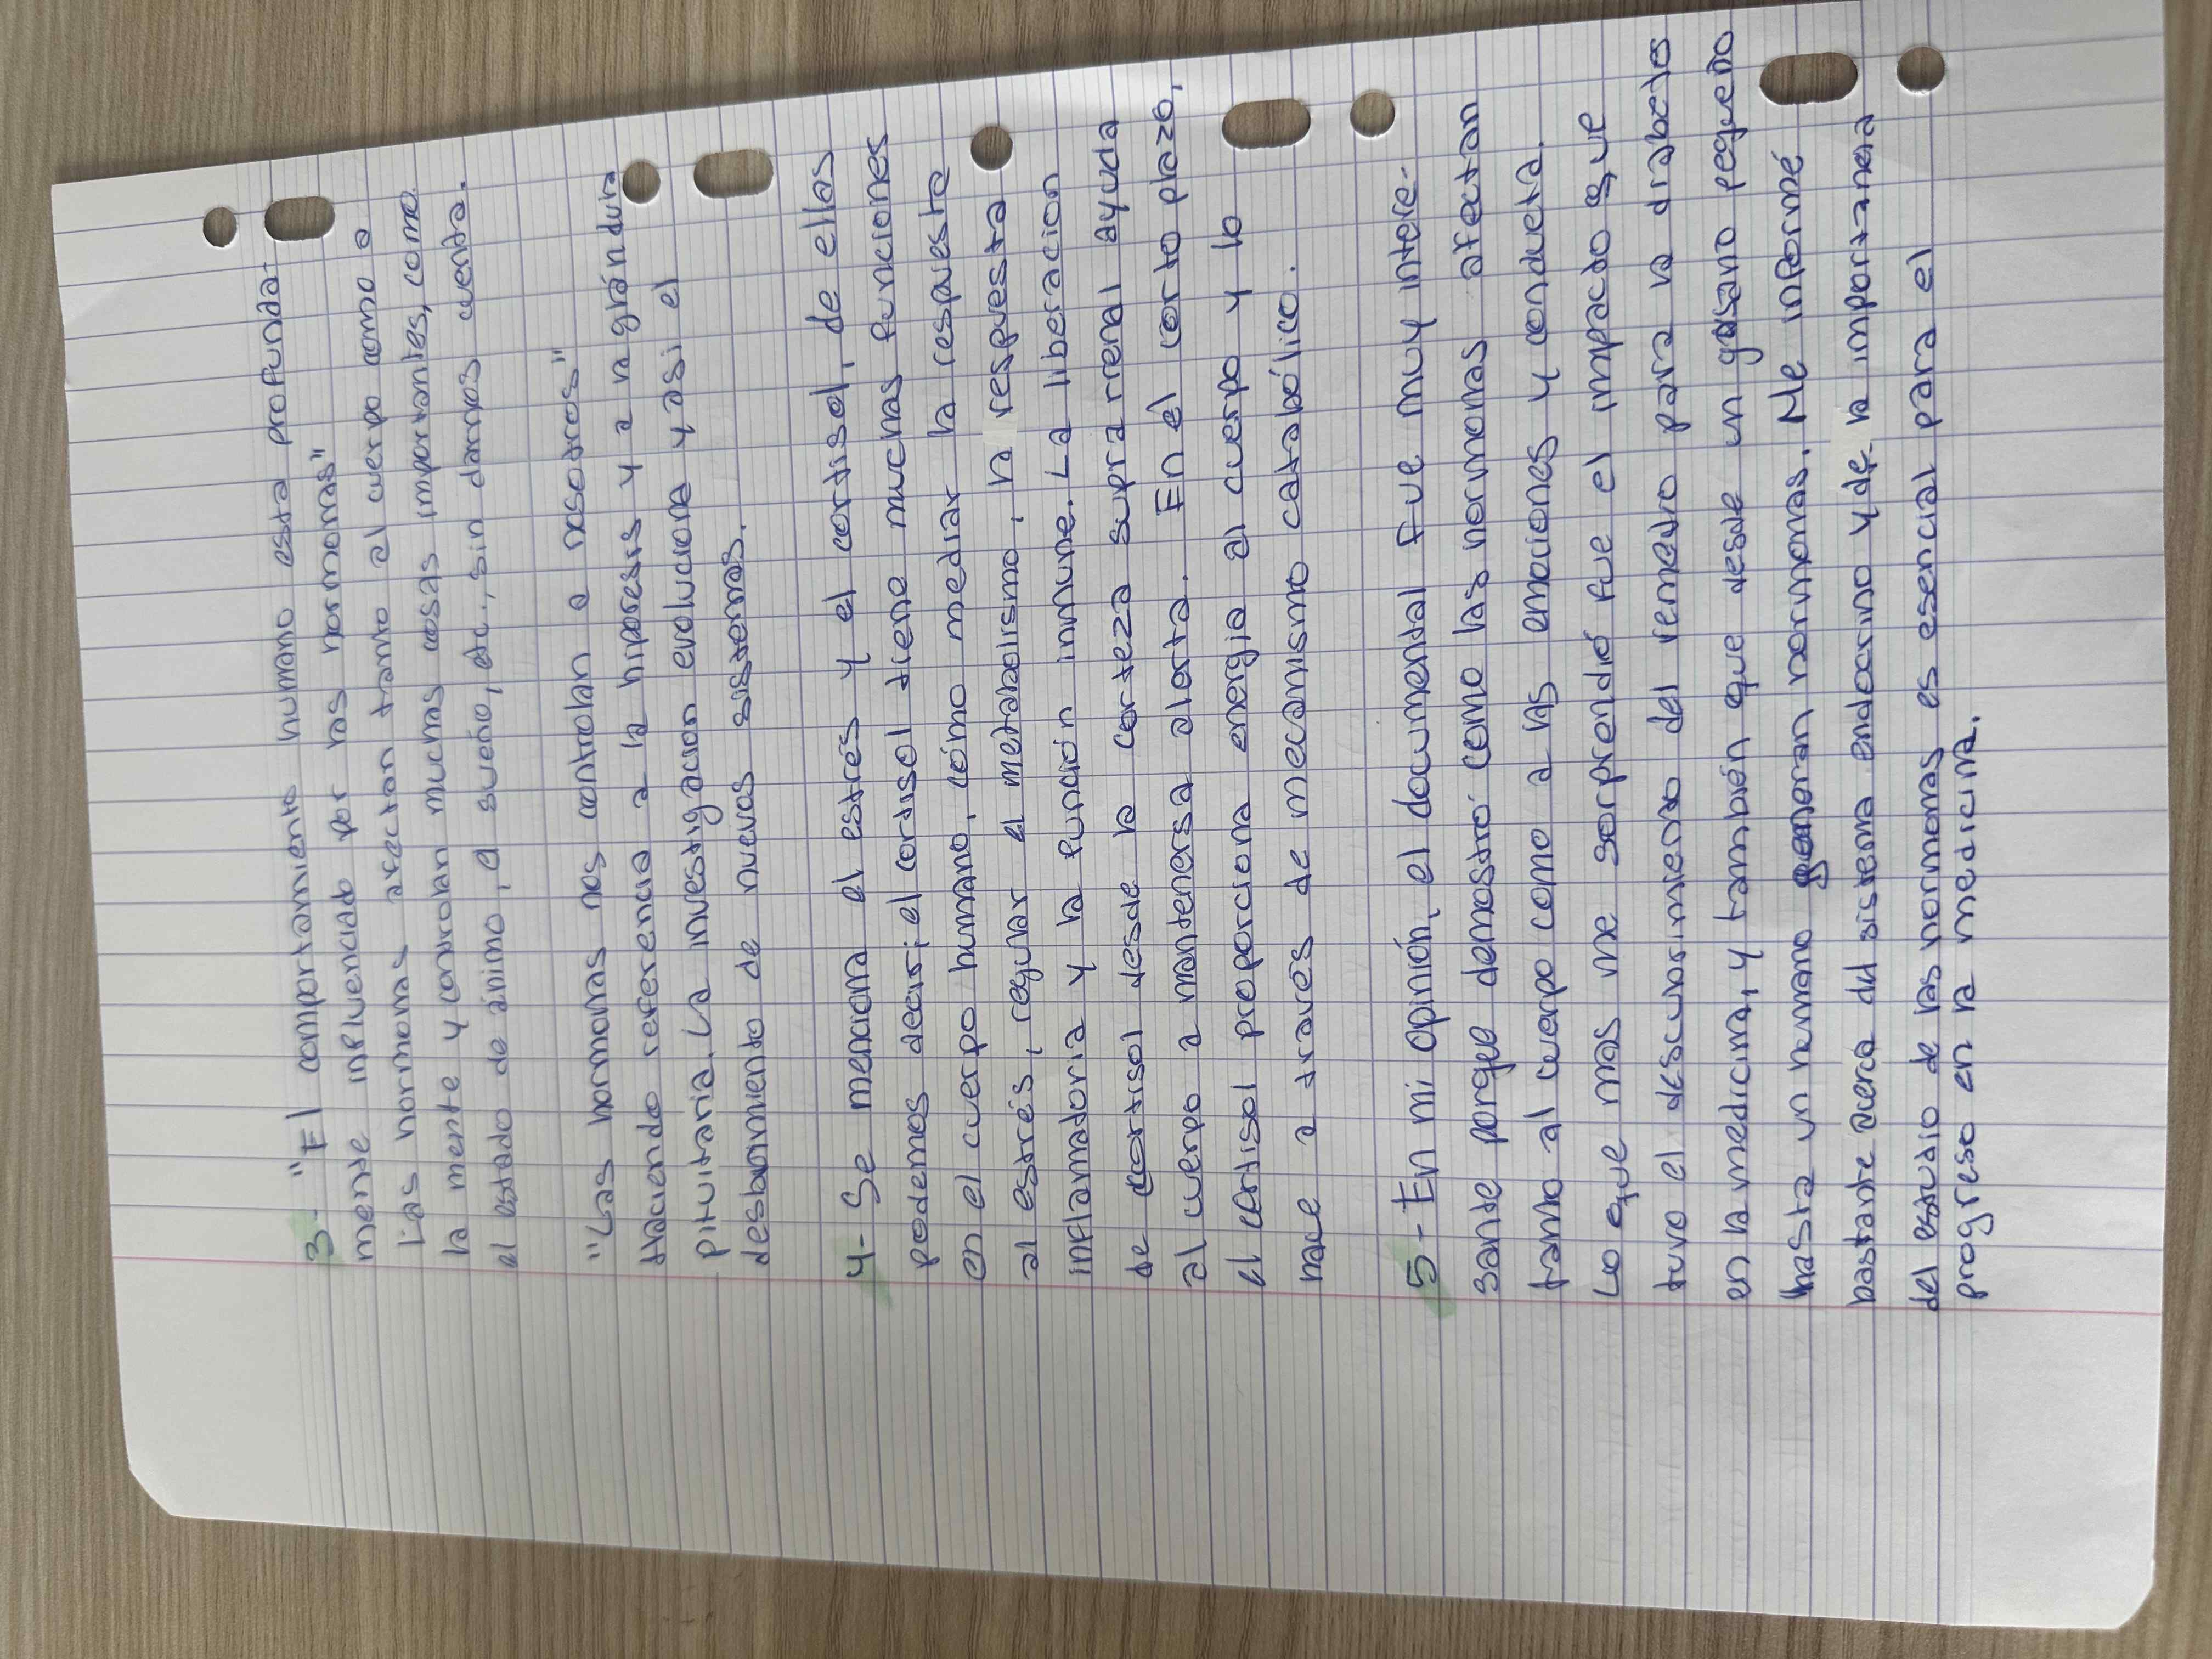 3- "El comportamiento humano esta profunda-
mente influenciado por las hormonas"
Las hormonas afectan tanto al cuerpo como a
la mente y controlan muchas cosas importantes, como
el estado de ánimo, el sueño, etc., sin darnos cuenta.
"Las hormonas nos controlan a nosotros"
Haciendo referencia a la hipofisis y a la glándula
pituitaria. La investigacion evoluciona y asi el
desbrimiento de nuevos sistemas.
4- Se menciona el estrés y el cortisol, de ellas
podemos decir; el cortisol tiene muchas funciones
en el cuerpo humano, cómo mediar la respuesta
al estrés, regular el metabolismo, la respuesta
inflamatoria y la función inmune. La liberacion
de cortisol desde la corteza suprarrenal ayuda
al cuerpo a mantenersa alerta. En el corto plazo,
el cortisol proporciona energia al cuerpo y lo
hace a través de mecanismo catabólico.
5- En mi opinión, el documental fue muy intere-
sante porque demostró como las hormonas afectan
tanto al cuerpo como a las emociones y conducta.
Lo que mas me sorprendió fue el impacto que
tuvo el descubrimiento del remedio para la diabetes
en la medicina, y también que desde un gusano pequeño
hasta un humano generan hormonas. Me informé
bastante acerca del sistema endocrino y de la importancia
del estudio de las hormonas es esencial para el
progreso en la medicina.